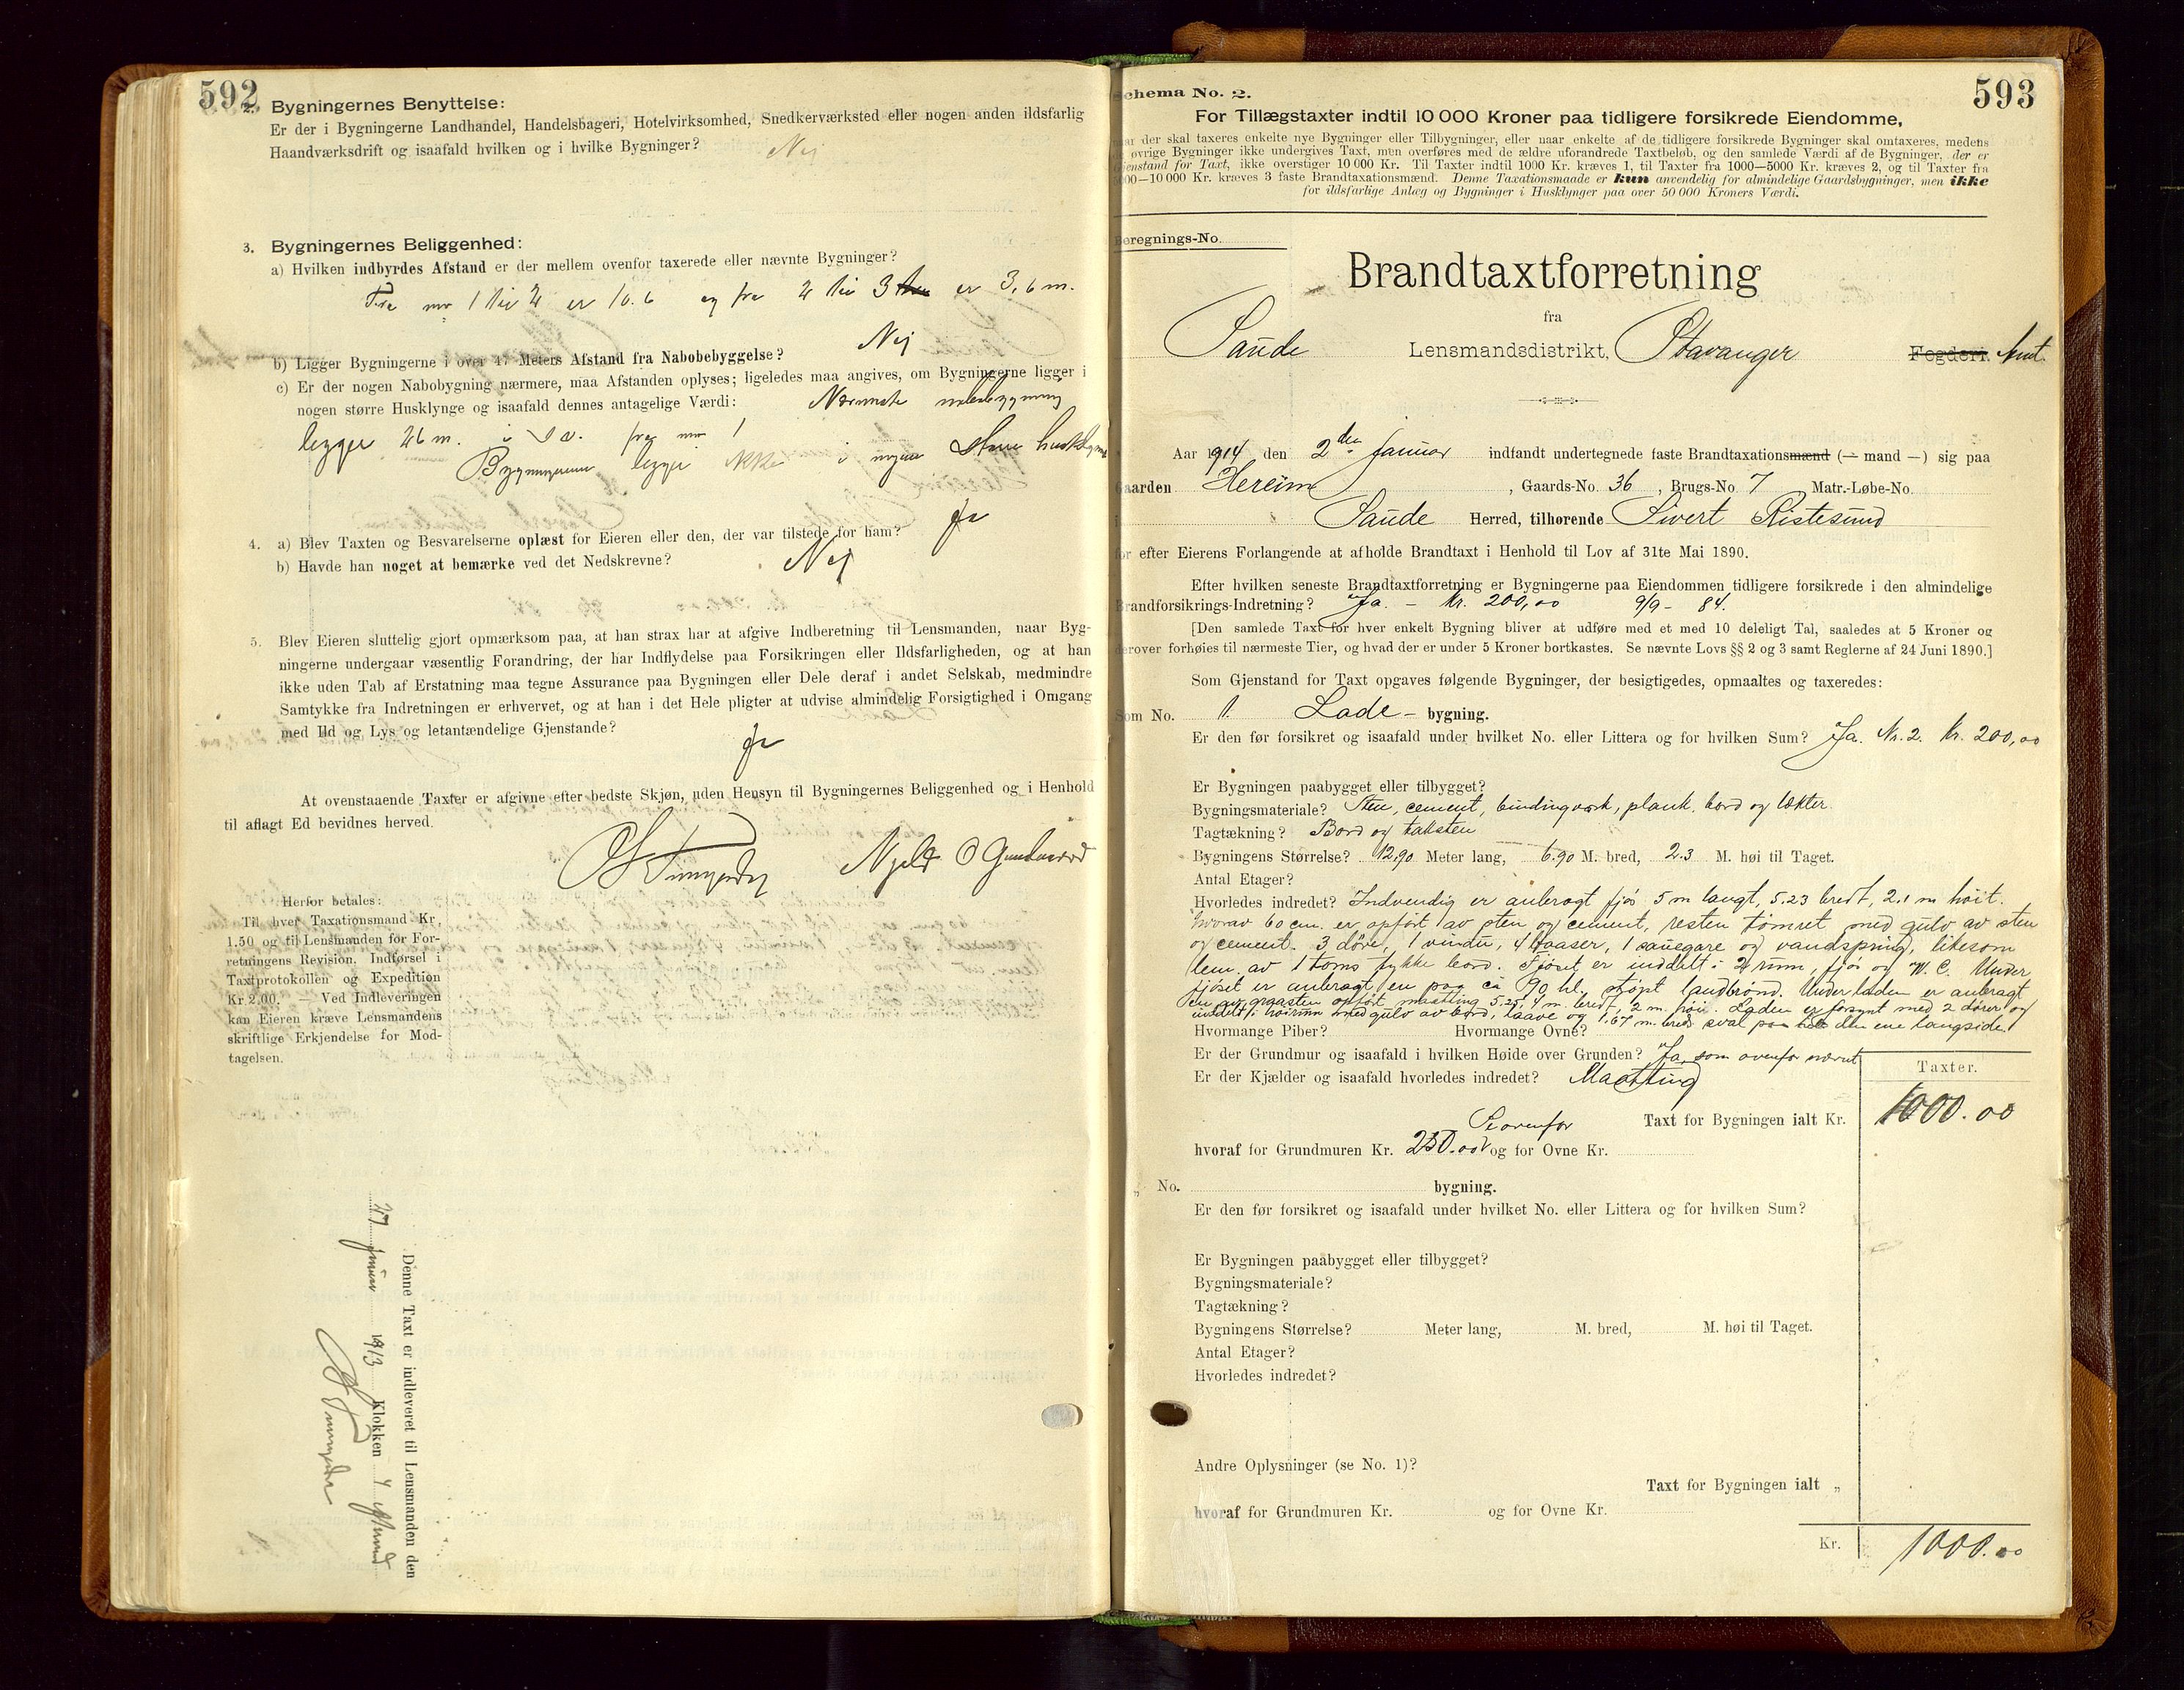 592
2. Bygningernes Benyttelse:
Er der i Bygningerne Landhandel, Handelsbageri, Hotelvirksomhed, Snedkerværksted eller nogen anden ildsfarlig
Haandværksdrift og isaafald hvilken og i hvilke Bygninger? Nej
3. Bygningernes Beliggenhed:
a) Hvilken indbyrdes Afstand er der mellem ovenfor taxerede eller nævnte Bygninger?
Fra nr 1 til 2 er 10.6 og fra 2 til 3 er 3,6 m.
b) Ligger Bygningerne i over 47 Meters Afstand fra Nabobebyggelse? Nej
c) Er der nogen Nabobygning nærmere, maa Afstanden oplyses; ligeledes maa angives, om Bygningerne ligger i
nogen større Husklynge og isaafald dennes antagelige Værdi: Nærmeste nabobygning
ligger 26 m. i fra nr 1
Bygningerne ligger ikke i nogen større husklynge
4. a) Blev Taxten og Besvarelserne oplæst for Eieren eller den, der var tilstede for ham? Ja
b) Havde han noget at bemærke ved det Nedskrevne? Nej
5. Blev Eieren sluttelig gjort opmærksom paa, at han strax har at afgive Indberetning til Lensmanden, naar Byg-
ningerne undergaar væsentlig Forandring, der har Indflydelse paa Forsikringen eller Ildsfarligheden, og at han
ikke uden Tab af Erstatning maa tegne Assurance paa Bygningen eller Dele deraf i andet Selskab, medmindre
Samtykke fra Indretningen er erhvervet, og at han i det Hele pligter at udvise almindelig Forsigtighed i Omgang
med Ild og Lys og letantændelige Gjenstande?
Ja
At ovenstaaende Taxter er afgivne efter bedste Skjøn, uden Hensyn til Bygningernes Beliggenhed og i Henhold
til aflagt Ed bevidnes herved.
Herfor betales:
Til hver Taxationsmand Kr.
1.50 og til Lensmanden for For-
retningens Revision, Indførsel i
Taxtprotokollen og Expedition
Kr 2.00. — Ved Indleveringen
kan Eieren kræve Lensmandens
skriftlige Erkjendelse for Mod-
tagelsen.
Denne Taxt er indleveret til Lensmanden den
17 1913 Klokken 4
593
Schema No. 2.
For Tillægstaxter indtil 10 000 Kroner paa tidligere forsikrede Eiendomme,
ar der skal taxeres enkelte nye Bygninger eller Tilbygninger, eller naar enkelte af de tidligere forsikrede Bygninger skal omtaxeres, medens
øvrige Bygninger ikke undergives Taxt, men overføres med de ældre uforandrede Taxtbeløb, og den samlede Værdi af de Bygninger, der er
jenstand for Taxt, ikke overstiger 10 000 Kr. Til Taxter indtil 1000 Kr. kræves 1, til Taxter fra 1000—5000 Kr. kræves 2, og til Taxter fra
000—10 000 Kr. kræves 3 faste Brandtaxationsmænd. Denne Taxationsmaade er kun anvendelig for almindelige Gaardsbygninger, men ikke
for ildsfarlige Anlæg og Bygninger i Husklynger paa over 50 000 Kroners Værdi.
Beregnings-No.
Brandtaxtforretning
fra
Saude Lensmandsdistrikt, Stavanger Fogderi. Amt.
Aar 1914 den 2den Januar indfandt undertegnede faste Brandtaxationsmænd (— mand —) sig paa
Gaarden Hereim, Gaards-No. 36, Brugs-No 7 Matr.-Løbe-No.
i Saude Herred, tilhørende Sivert Ristesund
for efter Eierens Forlangende at afholde Brandtaxt i Henhold til Lov af 31te Mai 1890.
Efter hvilken seneste Brandtaxtforretning er Bygningerne paa Eiendommen tidligere forsikrede i den almindelige
Brandforsikrings-Indretning? Ja. — Kr. 200,00 9/9 - 84.
[Den samlede Taxt for hver enkelt Bygning bliver at udføre med et med 10 deleligt Tal, saaledes at 5 Kroner og
derover forhøies til nærmeste Tier, og hvad der er under 5 Kroner bortkastes. Se nævnte Lovs §§ 2 og 3 samt Reglerne af 24 Juni 1890.]
Som Gjenstand for Taxt opgaves følgende Bygninger, der besigtigedes, opmaaltes og taxeredes:
Som No. 1. Lade - bygning.
Er den før forsikret og isaafald under hvilket No. eller Littera og for hvilken Sum? Ja. Nr. 2. Kr. 200,00
Er Bygningen paabygget eller tilbygget?
Bygningsmateriale? Sten, cement, bindingverk, plank, bord og lækter.
Tagtækning? Bord og taksten
Bygningens Størrelse? 12,90 Meter lang, 6.90 M. bred, 2.3 M. høi til Taget.
Antal Etager?
Hvorledes indredet? Indvendig er anbragt fjøs 5 m langt, 5.23 bredt, 2.1 m høit.
hvorav 60 cm. er opført av sten og cement, resten tømret med gulv av sten
og cement. 3 døre, 1 vindu, 4 baaser, 1 sauegare og vandspring, likesom
lem av 1 toms tykke bord. Fjøset er inddelt i 2 rum, fjøs og W.C. Under
fjøset er anbragt en paa ca 90 hl. støpt landbrønd. Under laden er anbragt
en av graasten opført maatting 5.25, 4 m. bredt, 2 m. høi. Laden er forsynt med 2 dører og
inddelt i høirum med gulv av bord, laave og 1.67 m. bred sval paa den ene langside.
Hvormange Piber? Hvormange Ovne?
Er der Grundmur og isaafald i hvilken Høide over Grunden? Ja, som ovenfor nævnt
Er der Kjælder og isaafald hvorledes indredet? Maatting
Taxter.
Taxt for Bygningen ialt Kr. 1000.00
Se ovenfor
hvoraf for Grundmuren Kr. 250.00 og for Ovne Kr.
„ No. bygning.
Er den før forsikret og isaafald under hvilket No. eller Littera og for hvilken Sum?
Er Bygningen paabygget eller tilbygget?
Bygningsmateriale?
Tagtækning?
Bygningens Størrelse? Meter lang, M. bred, M. høi til Taget.
Antal Etager?
Hvorledes indredet?
Andre Oplysninger (se No. 1)?
Taxt for Bygningen ialt „
hvoraf for Grundmuren Kr. og for Ovne Kr.
Kr. 1000.00